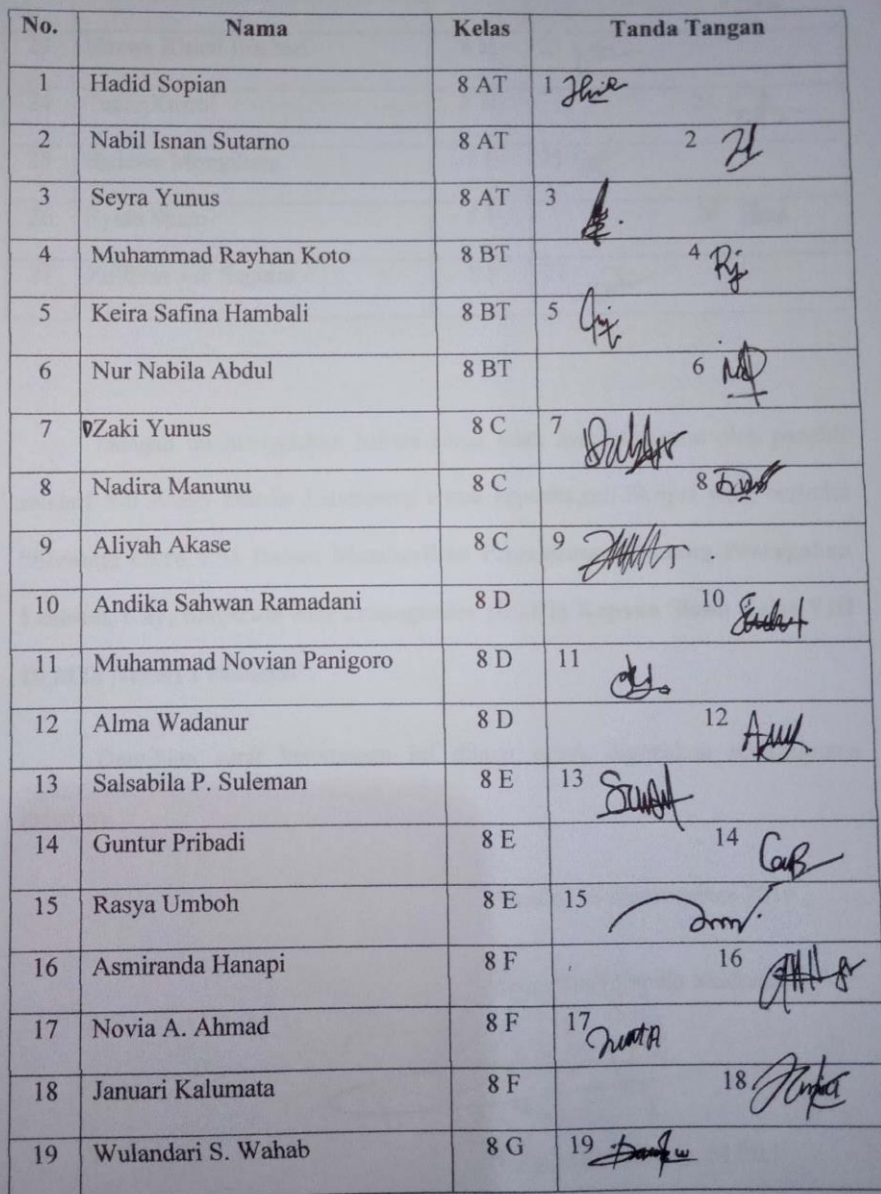 No. Nama Kelas Tanda Tangan
1 Hadid Sopian 8 AT 1
2 Nabil Isnan Sutarno 8 AT 2
3 Seyra Yunus 8 AT 3
4 Muhammad Rayhan Koto 8 BT 4
5 Keira Safina Hambali 8 BT 5
6 Nur Nabila Abdul 8 BT 6
7 Zaki Yunus 8 C 7
8 Nadira Manunu 8 C 8
9 Aliyah Akase 8 C 9
10 Andika Sahwan Ramadani 8 D 10
11 Muhammad Novian Panigoro 8 D 11
12 Alma Wadanur 8 D 12
13 Salsabila P. Suleman 8 E 13
14 Guntur Pribadi 8 E 14
15 Rasya Umboh 8 E 15
16 Asmiranda Hanapi 8 F 16
17 Novia A. Ahmad 8 F 17
18 Januari Kalumata 8 F 18
19 Wulandari S. Wahab 8 G 19